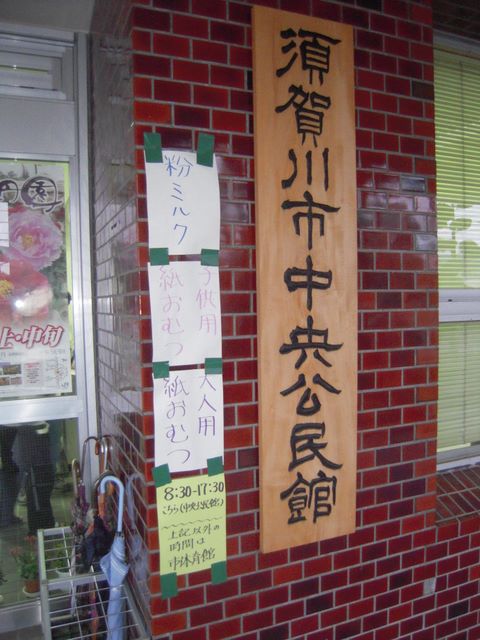 須賀川市中央公民館
粉ミルク
子供用
紙おむつ
大人用
紙おむつ
8:30-17:30
こちら(中央公民館)
上記以外の
時間は
市体育館
上・中旬